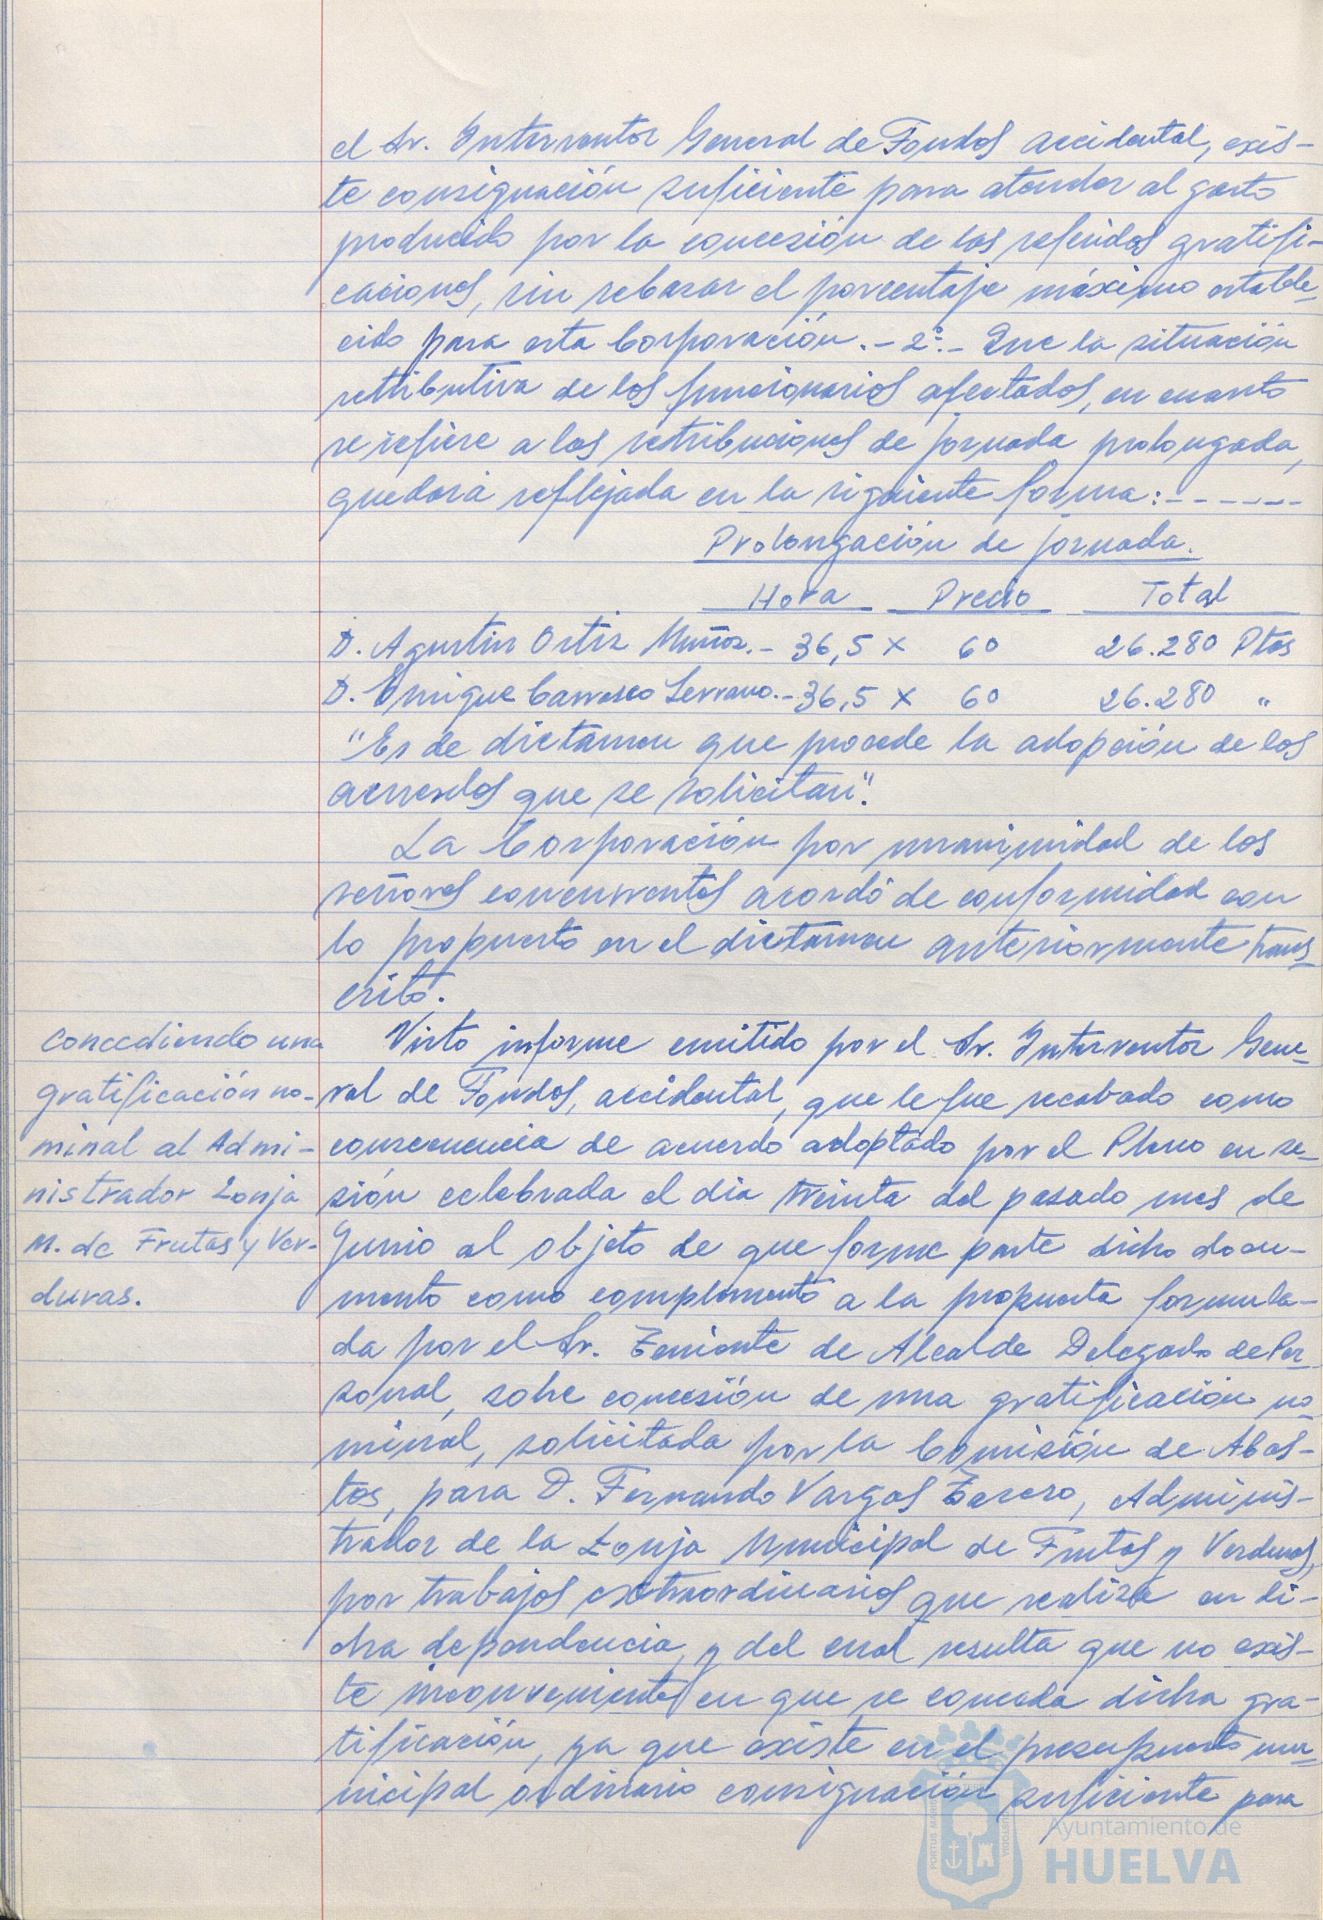 el Sr. Interventor General de Fondos accidental, exis-
te consignación suficiente para atender al gasto
producido por la concesión de las referidas gratifi-
caciones, sin rebasar el porcentaje máximo estable-
cido para esta Corporación.- 2º.- Que la situación
retributiva de los funcionarios afectados, en cuanto
se refiere a las retribuciones de jornada prolongada,
quedará reflejada en la siguiente forma:- - - - - -
Prolongación de jornada.
Hora Precio Total
D. Agustín Ortiz Muñoz.- 36,5 x 60 26.280 Ptas
D. Enrique Carrasco Serrano.- 36,5 x 60 26.280 "
"Es de dictamen que procede la adopción de los
acuerdos que se solicitan".
La Corporación por unanimidad de los
señores concurrentes acordó de conformidad con
lo propuesto en el dictamen anteriormente trans-
crito.
concediendo una
gratificación no-
minal al Admi-
nistrador Lonja
M. de Frutas y Ver-
duras.
Visto informe emitido por el Sr. Interventor Gene-
ral de Fondos, accidental, que le fue recabado como
consecuencia de acuerdo adoptado por el Pleno en se-
sión celebrada el día treinta del pasado mes de
Junio al objeto de que forme parte dicho docu-
mento como complemento a la propuesta formula-
da por el Sr. Teniente de Alcalde Delegado de Per-
sonal, sobre concesión de una gratificación no-
minal, solicitada por la Comisión de Abas-
tos, para D. Fernando Vargas Terero, Adminis-
trador de la Lonja Municipal de Frutas y Verduras,
por trabajos extraordinarios que realiza en di-
cha dependencia, y del cual resulta que no exis-
te inconveniente en que se conceda dicha gra-
tificación, ya que existe en el presupuesto mu-
nicipal ordinario consignación suficiente para
Ayuntamiento de
HUELVA